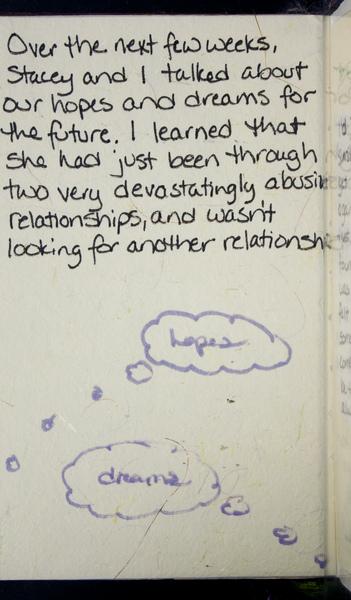 Over the next few weeks,
Stacey and I talked about
our hopes and dreams for
the future. I learned that
she had just been through
two very devastatingly abusin
relationships, and wasn't
looking for another relationshi
hopes
dreams